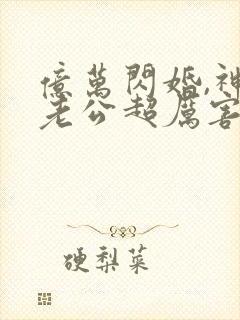 億萬閃婚,神
老公超厲害
硬梨菜